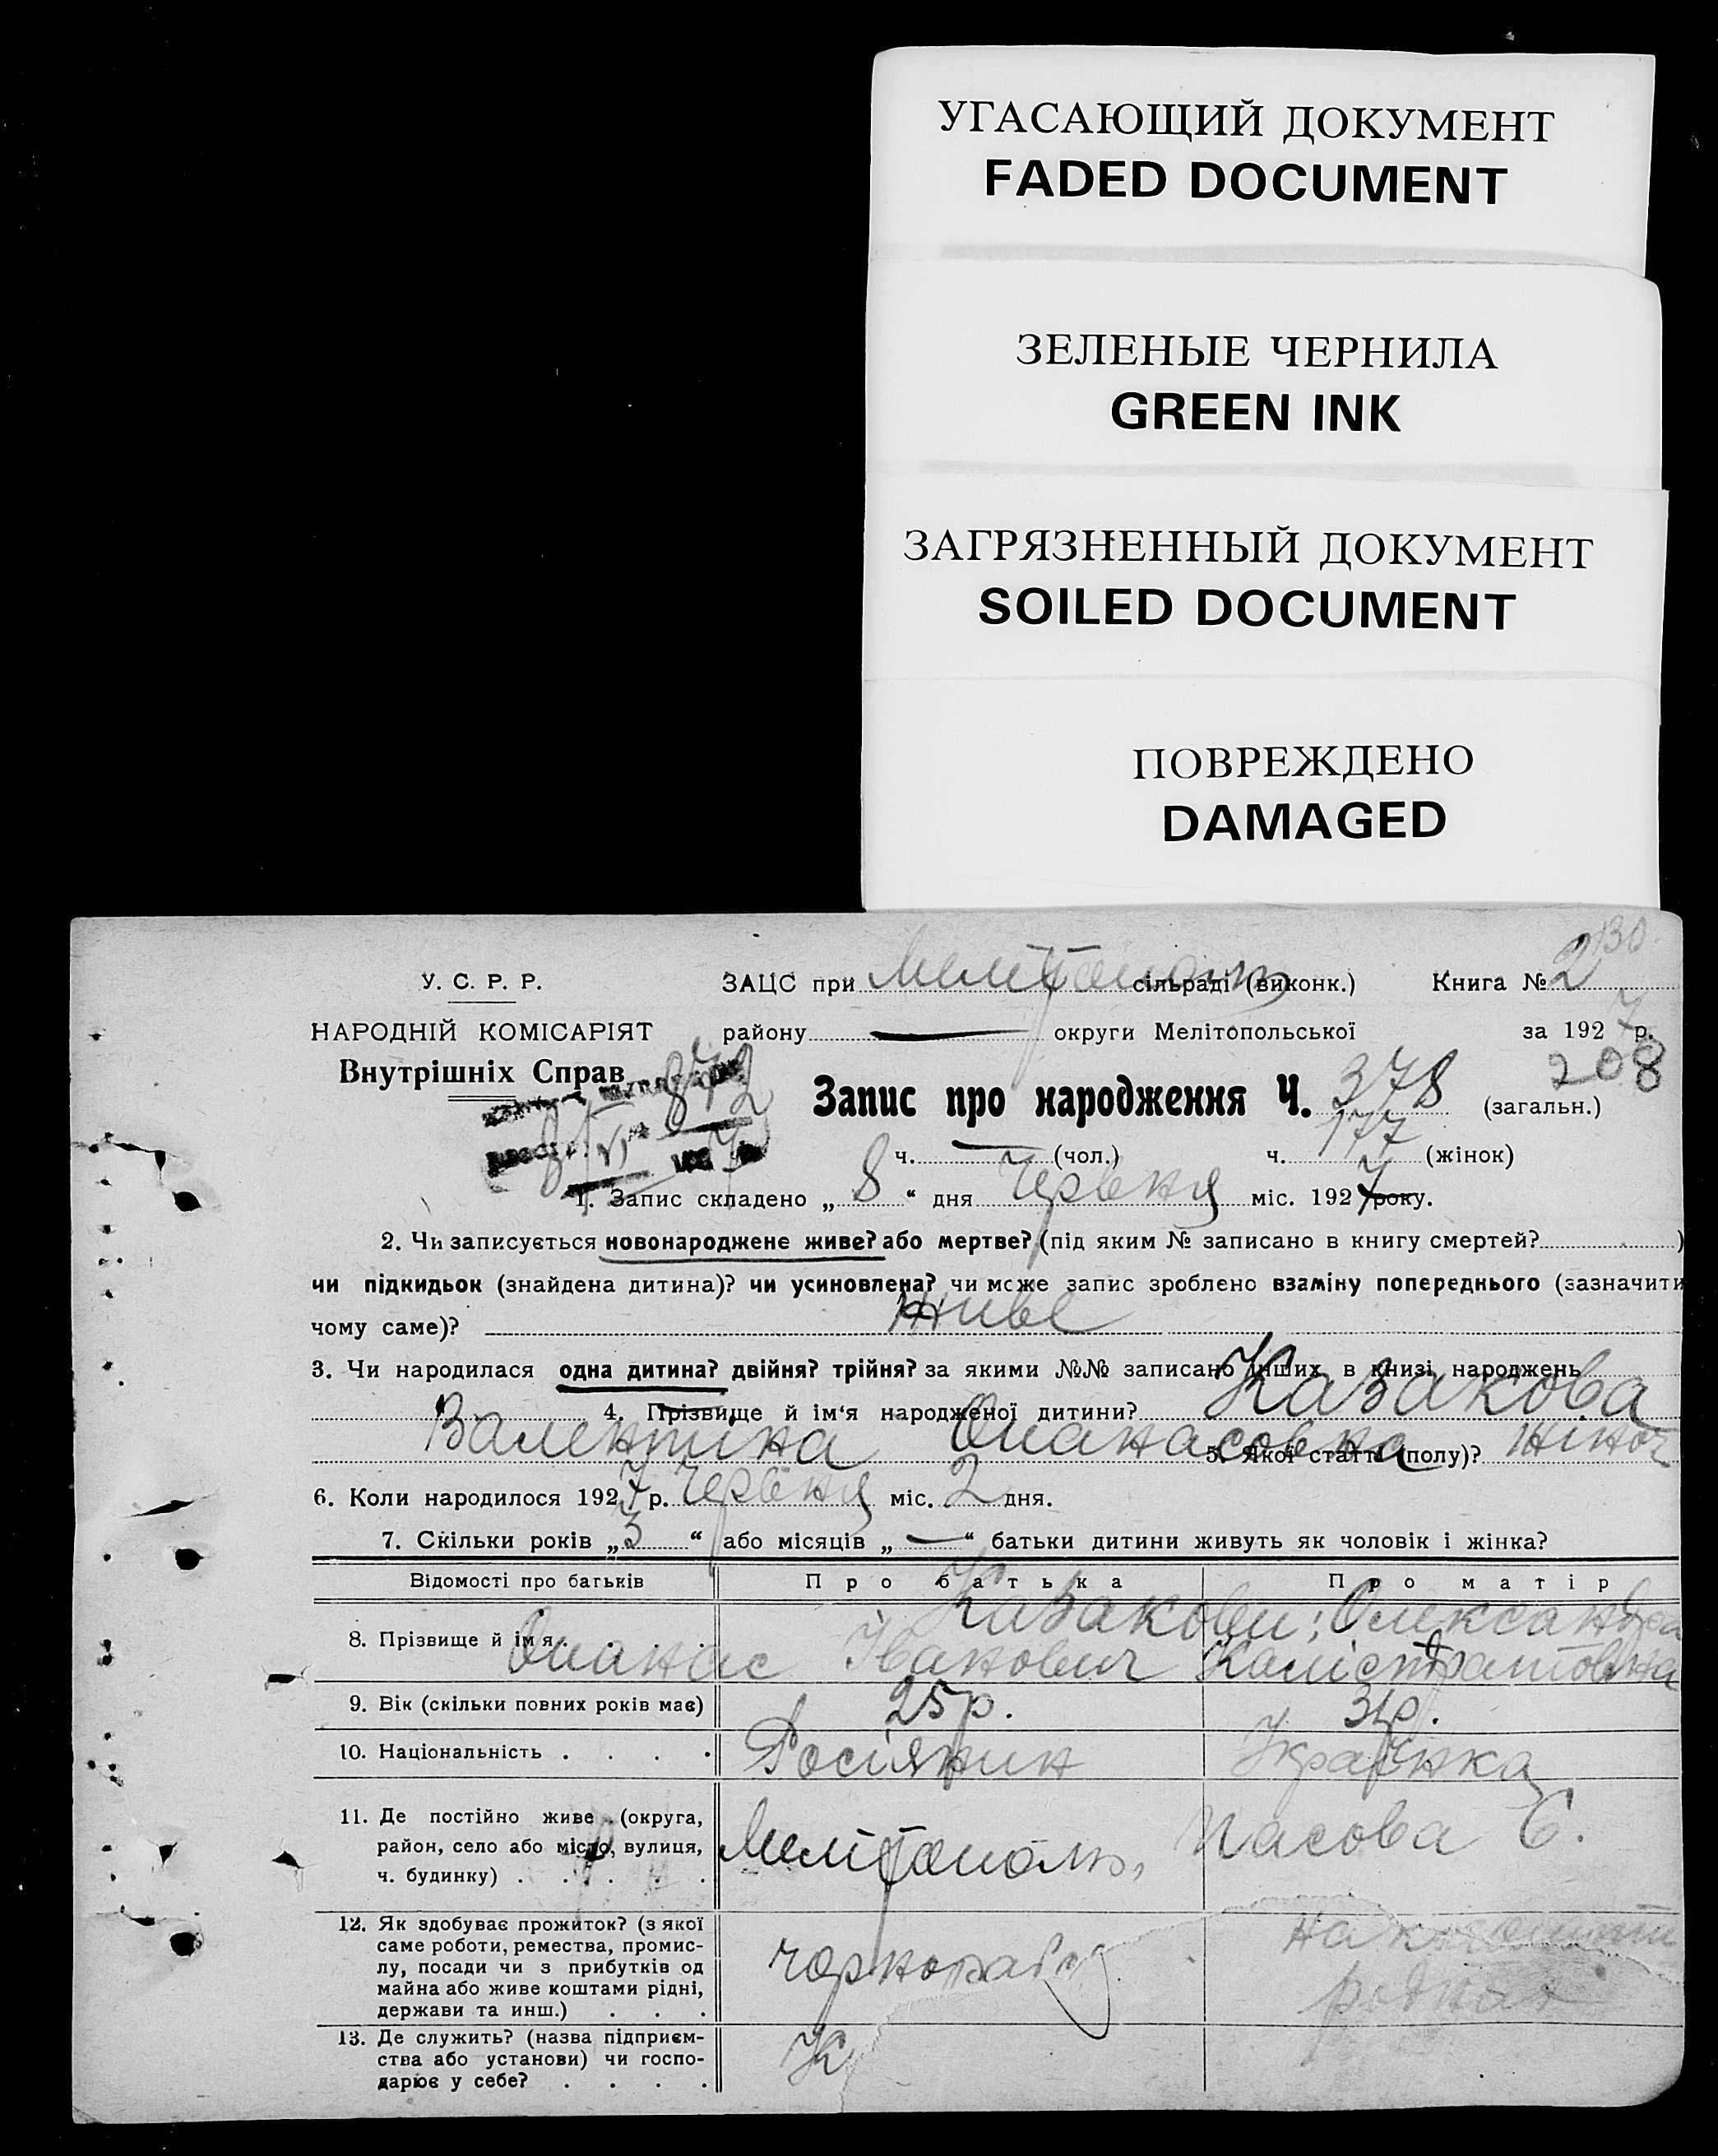 УГАСАЮЩИЙ ДОКУМЕНТ
FADED DOCUMENT
ЗЕЛЕНЫЕ ЧЕРНИЛА
GREEN INK
ЗАГРЯЗНЕННЫЙ ДОКУМЕНТ
SOILED DOCUMENT
ПОВРЕЖДЕНО
DAMAGED
130
У. С. Р. Р.
НАРОДНІЙ КОМІСАРІЯТ
Внутрішніх Справ
872
ЗАЦС при Мелітополь сільраді (виконк.) Книга № 2
району — округи Мелітопольської за 1927 р.
208
Запис про народження Ч. 378 (загальн.)
ч. — (чол.) ч. 177 (жінок)
1. Запис складено „ 8 “ дня Червня міс. 1927 року.
2. Чи записується новонароджене живе? або мертве? (під яким № записано в книгу смертей? )
чи підкидьок (знайдена дитина)? чи усиновлена? чи може запис зроблено взаміну попереднього (зазначити
чому саме)? живе
3. Чи народилася одна дитина? двійня? трійня? за якими №№ записано инших в книзі народжень
4. Прізвище й ім‘я народженої дитини? Казакова
Валентіна Опанасовна 5. Якої статті (полу)? жіноч
6. Коли народилося 1927 р. Червня міс. 2 дня.
7. Скільки років „ 3 “ або місяців „ — “ батьки дитини живуть як чоловік і жінка?
Відомості про батьків Про батька Про матір
8. Прізвище й ім‘я Казакови: Олександра
Опанас Іванович Калістратовна
9. Вік (скільки повних років має) 25 р. 31 р.
10. Національність Росіянин Українка
11. Де постійно живе (округа,
район, село або місто, вулиця,
ч. будинку) Мелітополь, Пасова 6.
12. Як здобуває прожиток? (з якої
саме роботи, ремества, промис-
лу, посади чи з прибутків од
майна або живе коштами рідні,
держави та инш.) чорнораб
13. Де служить? (назва підприєм-
ства або установи) чи госпо-
дарює у себе?